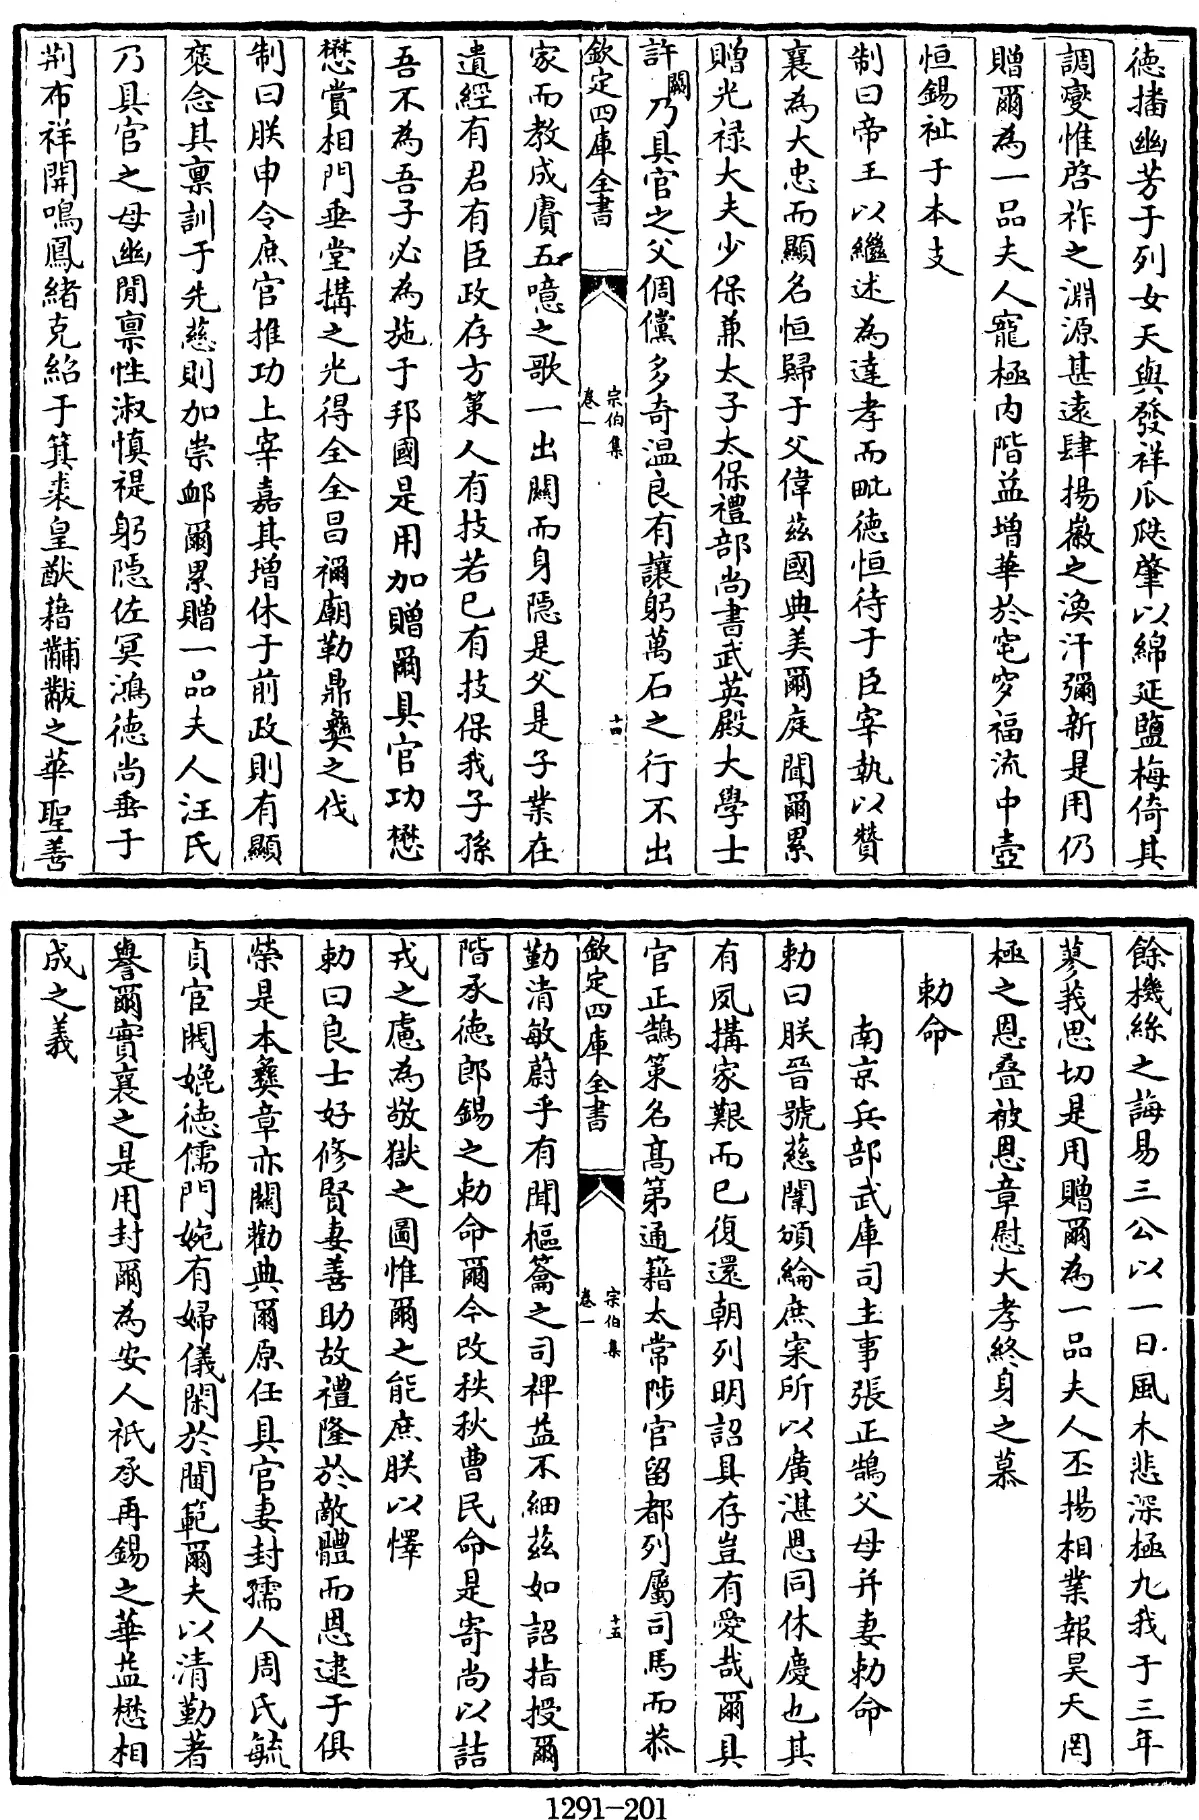 徳播幽芳于列女天與發祥瓜瓞肇以綿延鹽梅倚其
調燮惟啓祚之淵源甚遠肆揚徽之渙汗彌新是用仍
贈爾為一品夫人寵極内階益增華於窀穸福流中壼
恒錫祉于本支
制曰帝王以繼述為達孝而毗徳恒待于臣宰執以贊
襄為大忠而顯名恒歸于父偉兹國典美爾庭聞爾累
贈光禄大夫少保兼太子太保禮部尚書武英殿大學士
許闕乃具官之父倜儻多奇温良有讓躬萬石之行不出
欽定四庫全書
宗伯集
卷一
十四
家而教成賡五噫之歌一出關而身隱是父是子業在
遺經有君有臣政存方策人有技若已有技保我子孫
吾不為吾子必為施于邦國是用加贈爾具官功懋
懋賞相門垂堂搆之光得全全昌禰廟勒鼎彝之伐
制曰朕申令庶官推功上宰嘉其增休于前政則有顯
褒念其禀訓于先慈則加崇卹爾累贈一品夫人汪氏
乃具官之母幽閒禀性淑慎禔躬隱佐冥鴻徳尚垂于
荆布祥開鳴鳳緒克紹于箕裘皇猷藉黼黻之華聖善
餘機絲之誨易三公以一日風木悲深極九我于三年
蓼莪思切是用贈爾為一品夫人丕揚相業報昊天罔
極之恩叠被恩章慰大孝終身之慕
勅命
南京兵部武庫司主事張正鵠父母并妻勅命
勅曰朕晉號慈闈頒綸庶寀所以廣湛恩同休慶也其
有夙搆家艱而已復還朝列明詔具存豈有愛哉爾具
官正鵠策名髙第通籍太常陟官留都列屬司馬而恭
欽定四庫全書
宗伯集
卷一
十五
勤清敏蔚乎有聞樞籥之司禆益不細兹如詔指授爾
階承徳郎錫之勅命爾今改秩秋曹民命是寄尚以詰
戎之慮為敬獄之圖惟爾之能庶朕以懌
勅曰良士好修賢妻善助故禮隆於敵體而恩逮于俱
榮是本彝章亦關勸典爾原任具官妻封孺人周氏毓
貞宦閥娩徳儒門婉有婦儀閑於閫範爾夫以清勤著
譽爾實襄之是用封爾為安人祇承再錫之華益懋相
成之義
1291—201